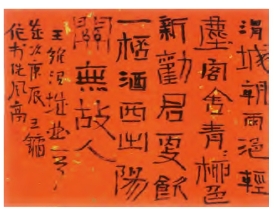 渭城朝雨浥輕
塵客舍青柳色
新勸君更飲
一杯酒西出陽
關無故人
王維渭城
歲次庚辰王鏞